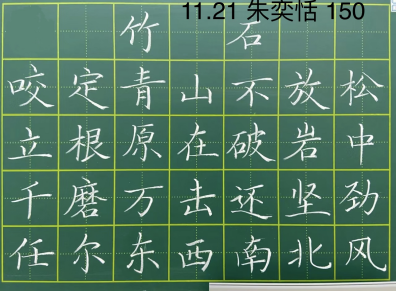 11.21 朱奕恬 150
竹 石
咬定青山不放松
立根原在破岩中
千磨万击还坚劲
任尔东西南北风